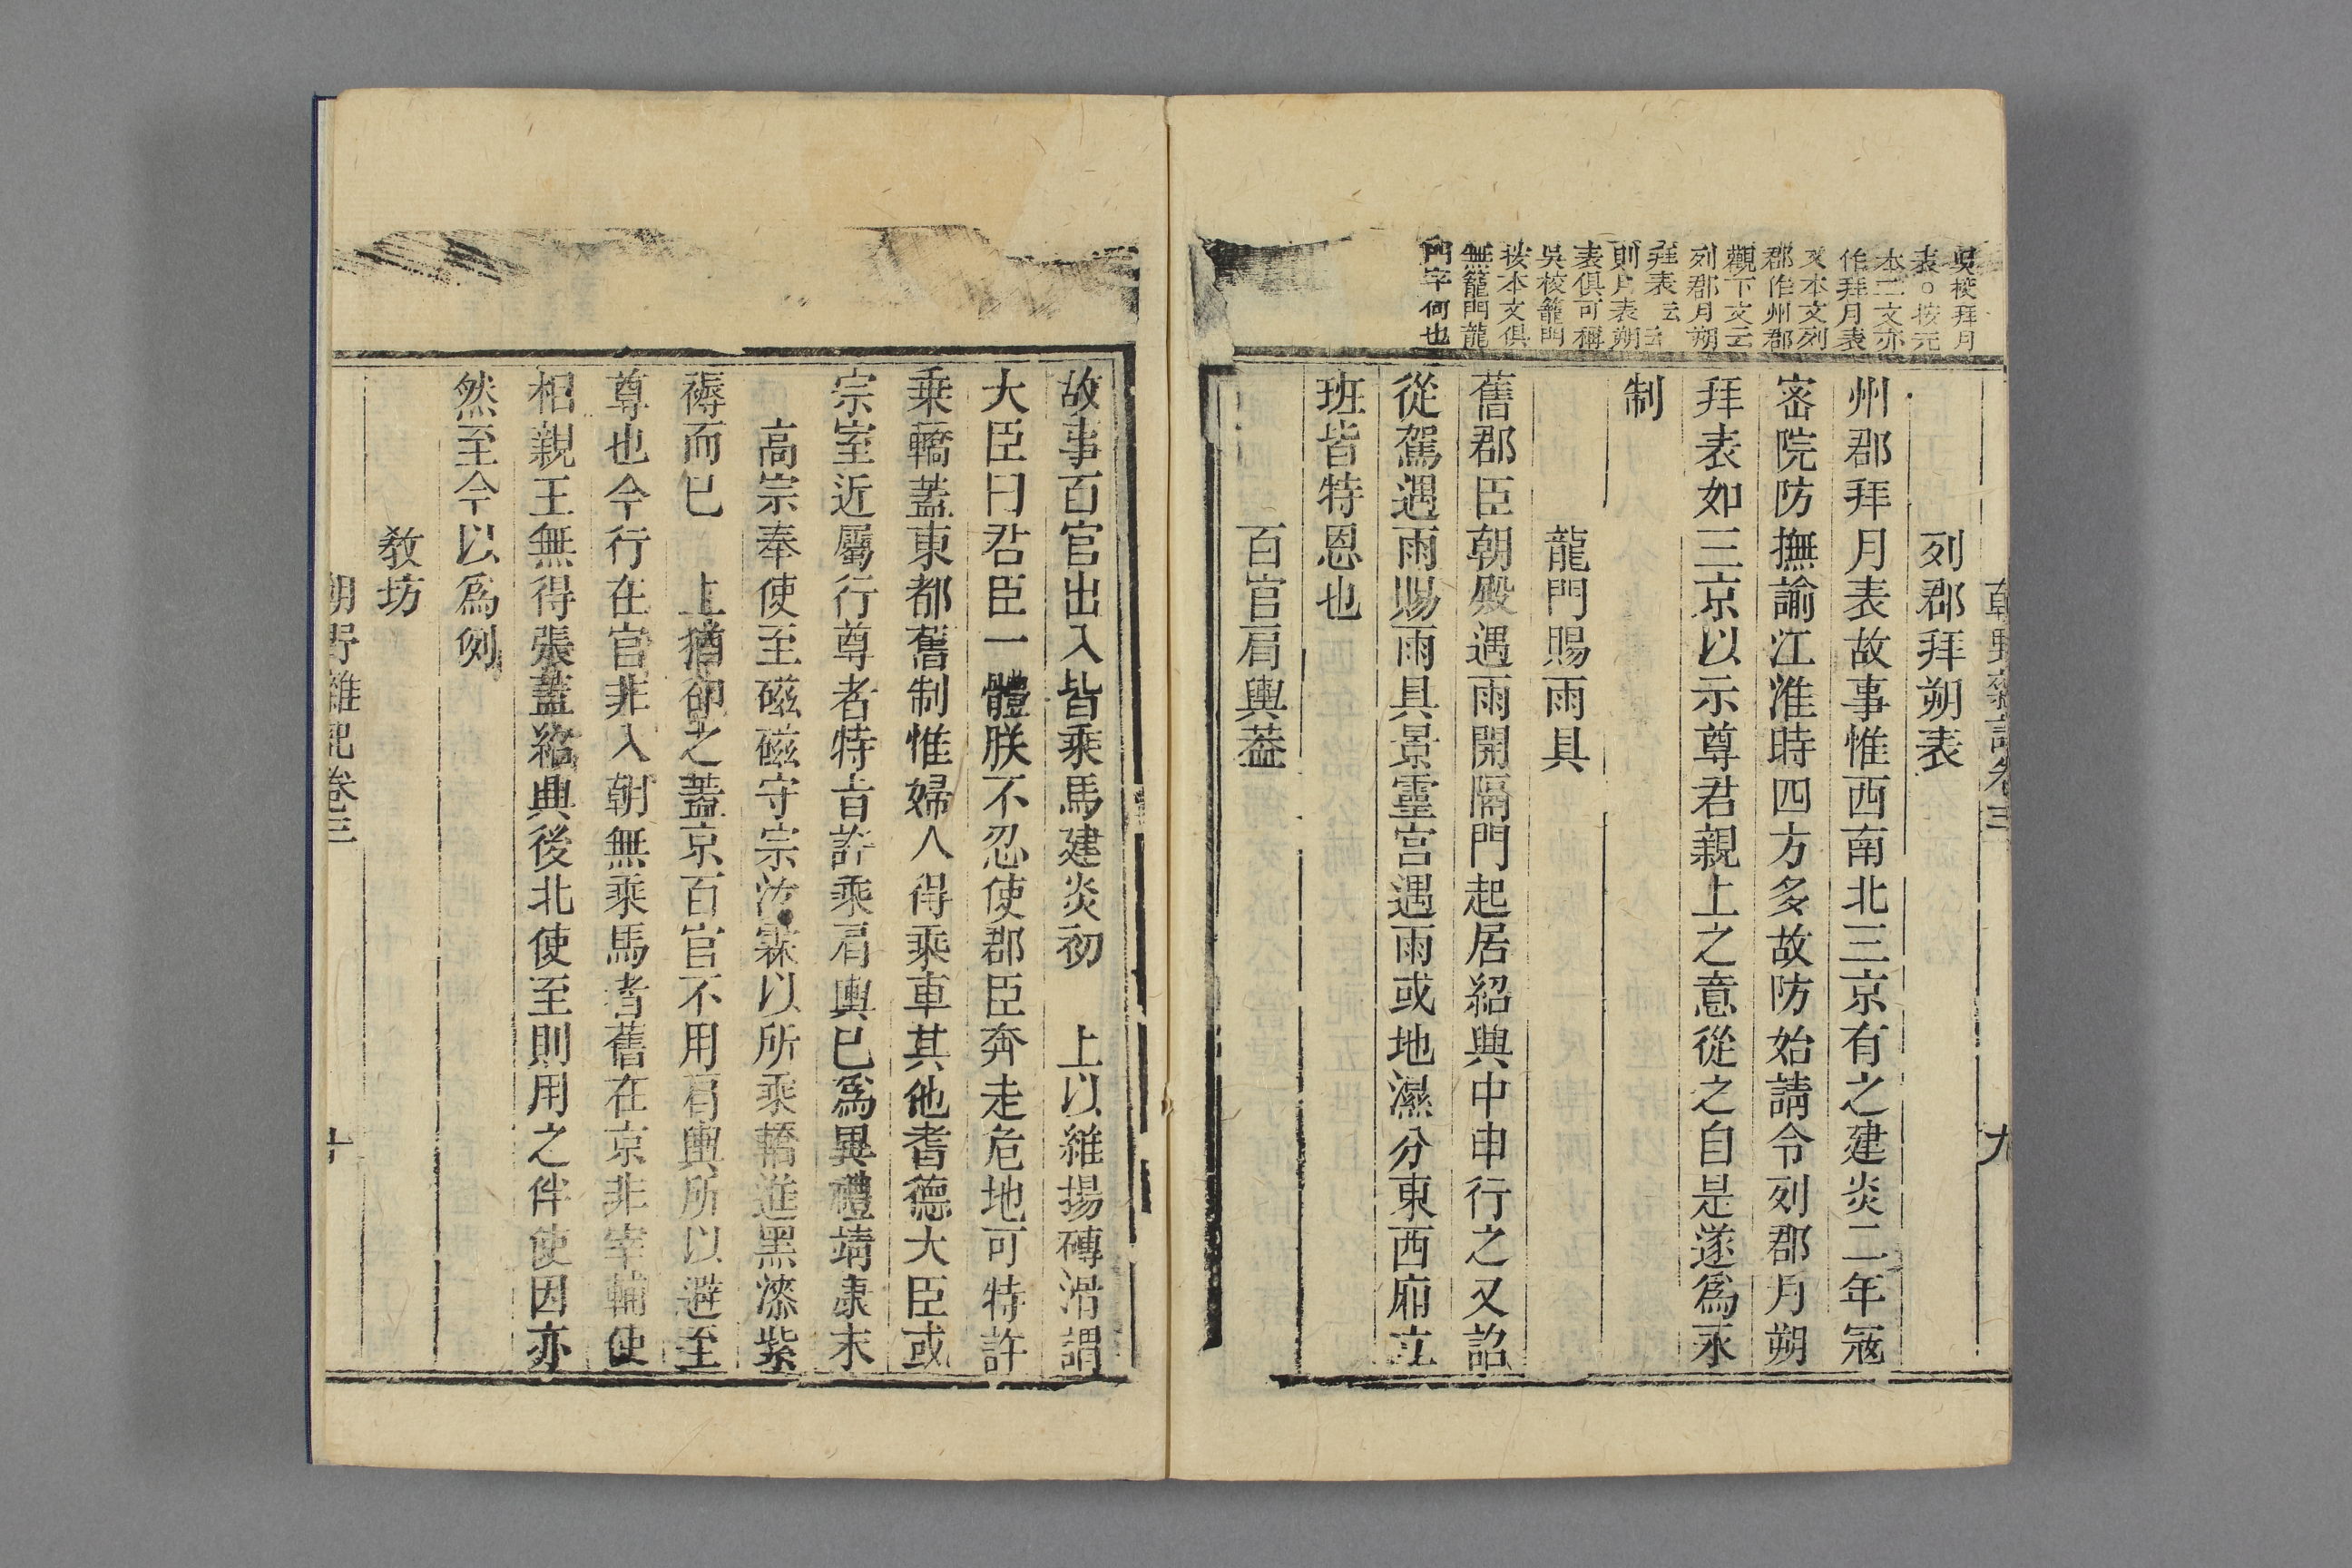 朝野雜記卷三
九
吳挍拜月
表○按元
本二文亦
作拜月表
又本文列
郡作州郡
觀下文云
列郡月朔
拜表云云
則月表朔
表俱可稱
吳校籠門
按本文俱
無籠門龍
門字何也
列郡拜朔表
州郡拜月表故事惟西南北三京有之建炎二年宼
密院防撫諭江淮時四方多故防始請令列郡月朔
拜表如三京以示尊君親上之意從之自是遂爲永
制
龍門賜雨具
舊郡臣朝殿遇雨開隔門起居紹興中申行之又詔
從駕遇雨賜雨具景靈宫遇雨或地濕分東西廂立
班皆特恩也
百官肩輿葢
故事百官出入皆乘馬建炎初　上以維揚磚滑謂
大臣曰君臣一體朕不忍使郡臣奔走危地可特許
乗轎蓋東都舊制惟婦人得乘車其他耆德大臣或
宗室近屬行尊者特旨許乘肩輿已爲異禮靖康末
高宗奉使至磁磁守宗汝霖以所乘轎進黑漆紫
褥而已　上猶卻之蓋京百官不用肩輿所以避至
尊也今行在官非入朝無乘馬者舊在京非宰輔使
相親王無得張蓋紹興後北使至則用之伴使因亦
然至今以爲例
教坊
朝野雜記卷三
十